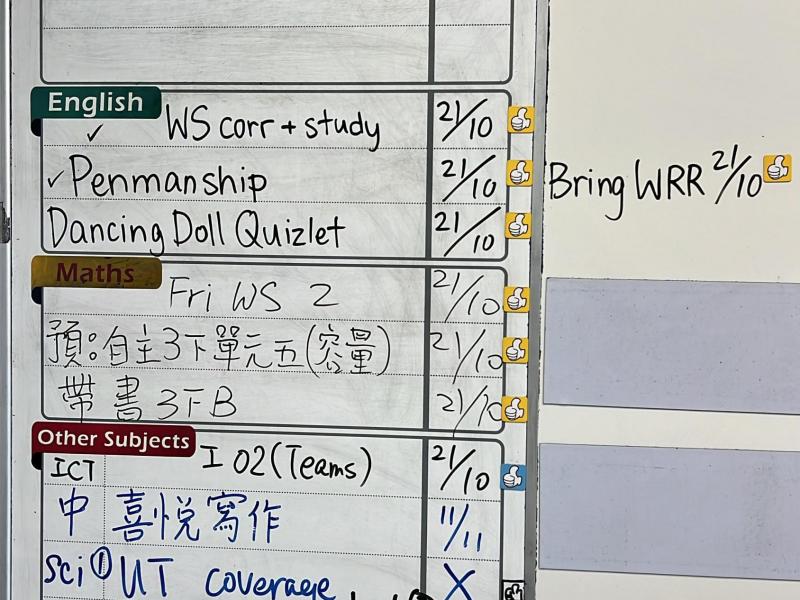 English
✓ WS corr + study 21/10
✓ Penmanship 21/10
Bring WRR 21/10
Dancing Doll Quizlet 21/10
Maths
Fri WS 2 21/10
預:自主3下單元五(容量) 21/10
帶書3下B 21/10
Other Subjects
ICT I 02 (Teams) 21/10
中 喜悅寫作 11/11
Sci ① UT coverage X